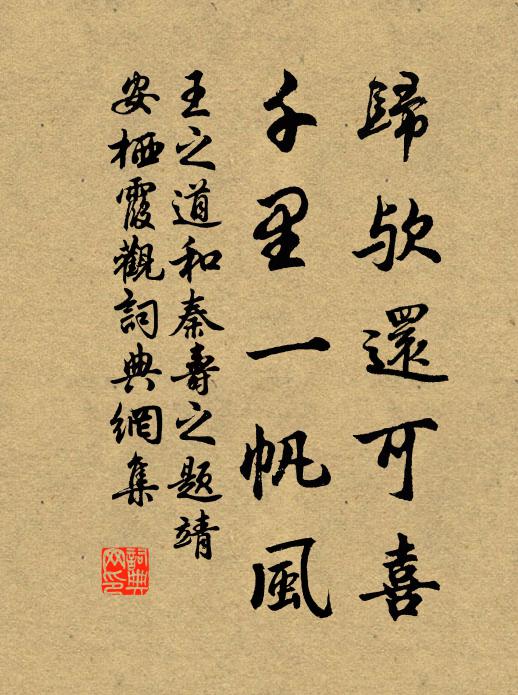 歸歟還可喜
千里一帆風
王之道和秦壽之題靖
安栖霞觀詞典網集
詞典
网印